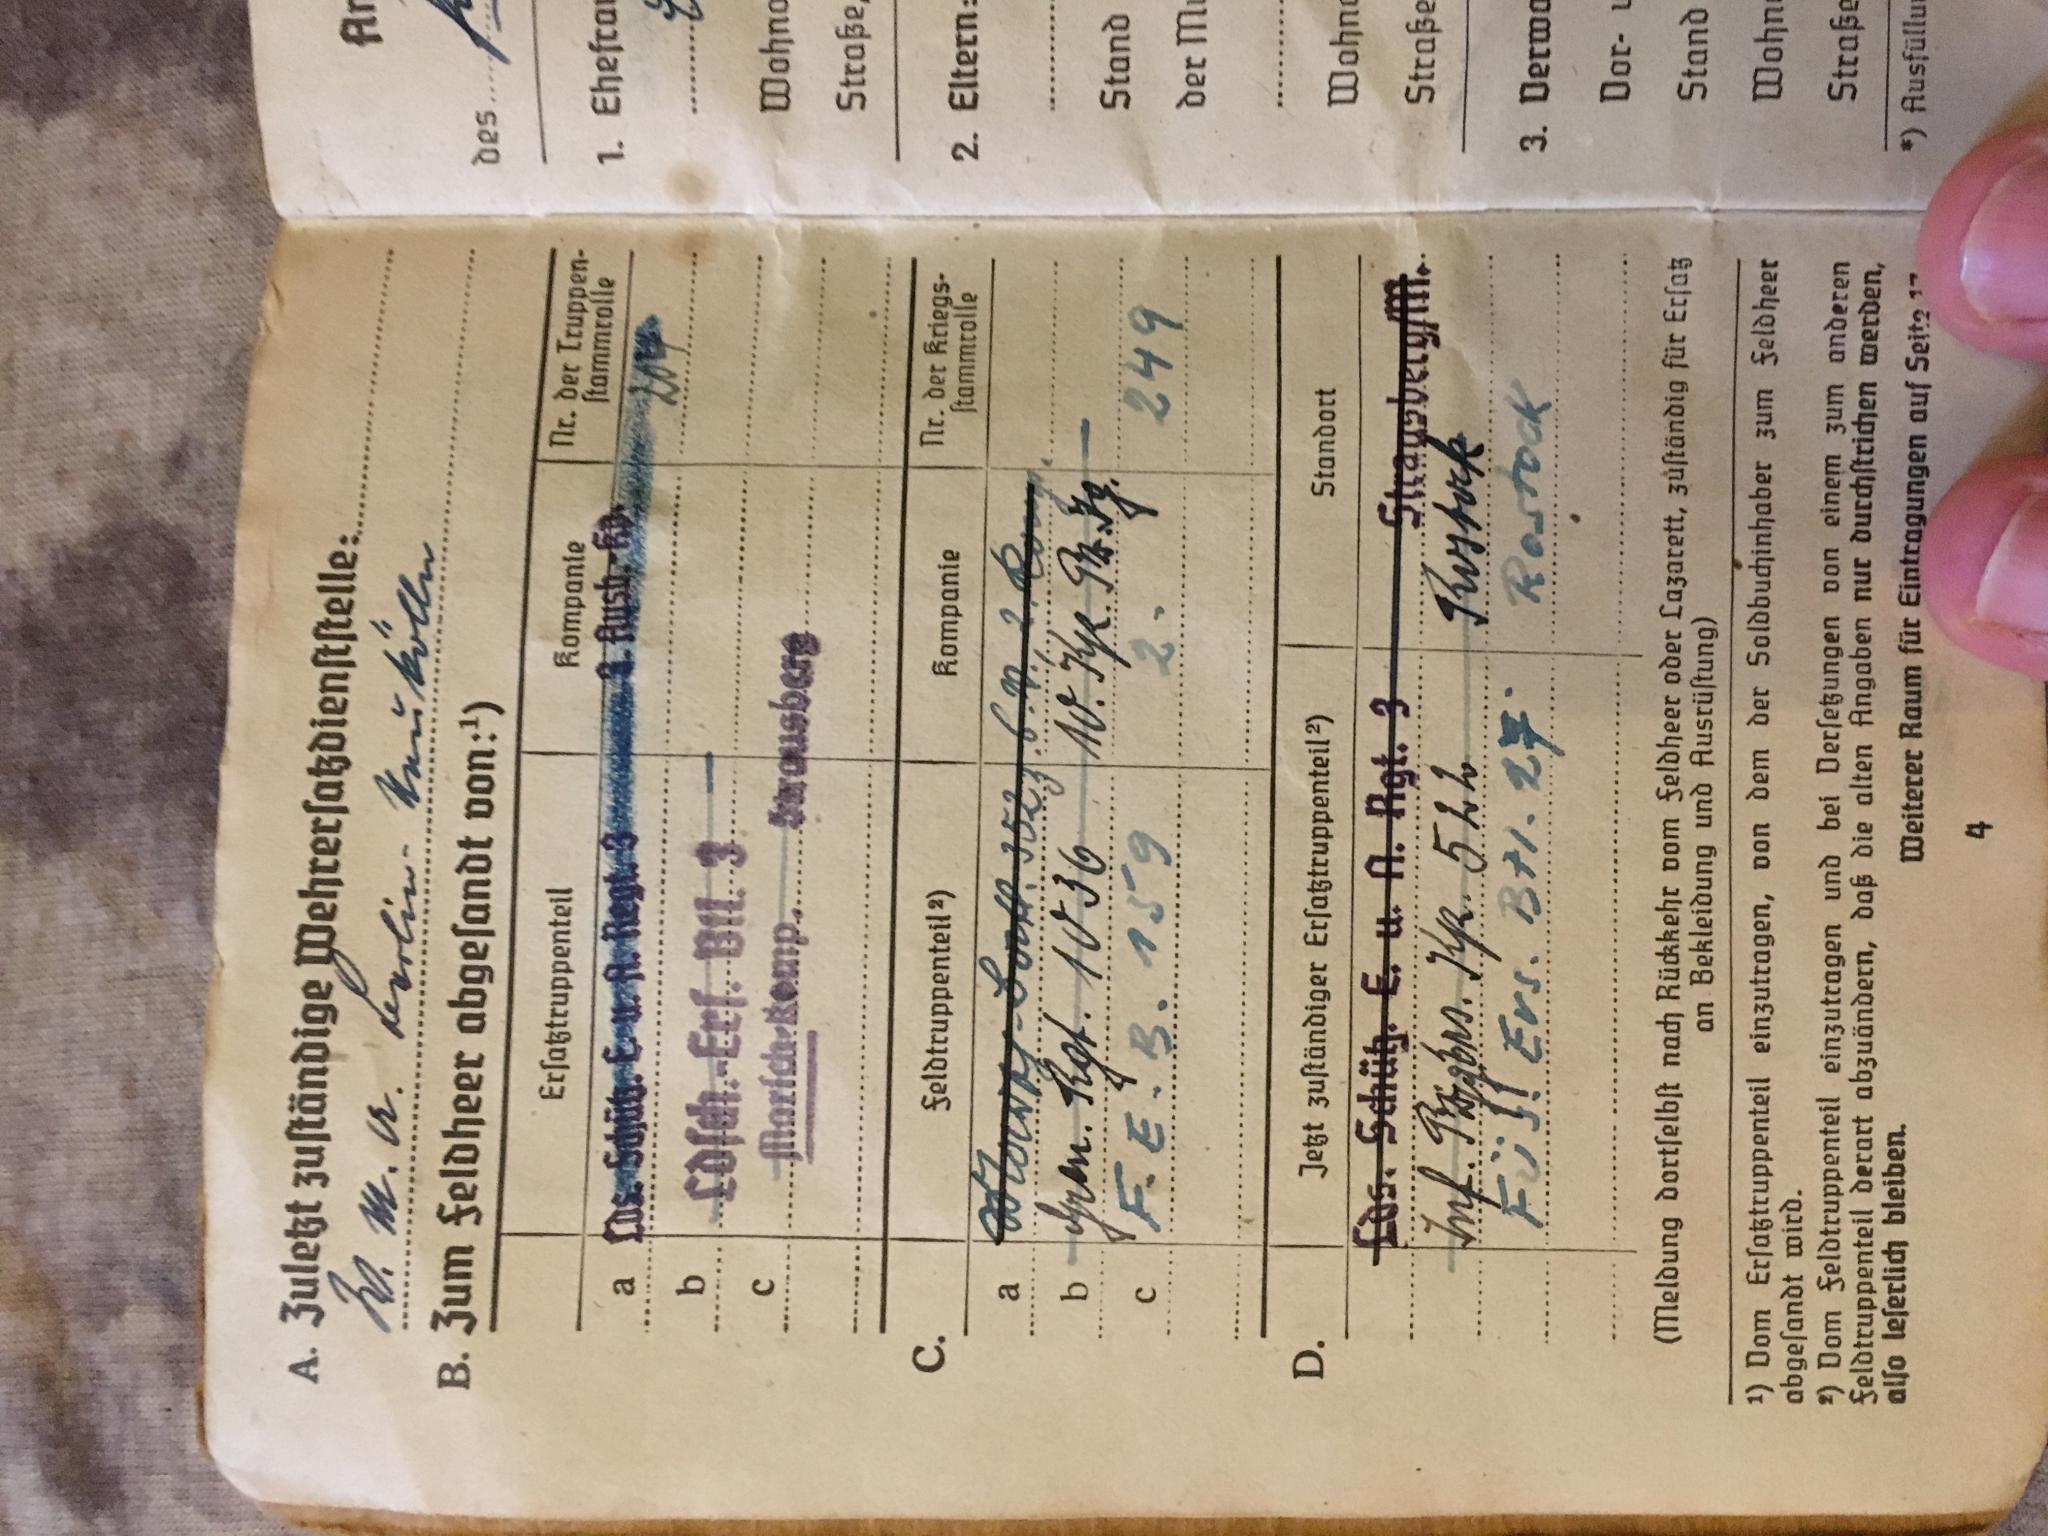 A. Zuletzt zuständige Wehrersatzdienststelle:
W. M. A. Berlin - Neukölln
B. Zum Feldheer abgesandt von:¹)
Ersatztruppenteil Kompanie Nr. der Truppenstammrolle
a Lds. Schütz. E. u. A. Regt. 3 2. Ausb.-Kp. 204
b Ldsch.-Ers. Btl. 3 —
c Marsch-Komp. Strausberg
C. Feldtruppenteil²) Kompanie Nr. der Kriegsstammrolle
a
b Gren. Rgt. 1036 10. —
c F. E. B. 159 2. 249
D. Jetzt zuständiger Ersatztruppenteil²) Standort
Lds. Schütz. E. u. A. Rgt. 3 Strausberg/M.
Inf. 522 Rostock
Füs. Ers. Btl. 27. Rostock
(Meldung dortselbst nach Rückkehr vom Feldheer oder Lazarett, zuständig für Ersatz
an Bekleidung und Ausrüstung)
¹) Vom Ersatztruppenteil einzutragen, von dem der Soldbuchinhaber zum Feldheer
abgesandt wird.
²) Vom Feldtruppenteil einzutragen und bei Versetzungen von einem zum anderen
Feldtruppenteil derart abzuändern, daß die alten Angaben nur durchstrichen werden,
also leserlich bleiben.
Weiterer Raum für Eintragungen auf Seite 17
4
An
des
1. Ehefrau
Wohno
Straße,
2. Eltern:
Stand
der Mu
Wohno
Straße
3. Verwa
Vor- u
Stand
Wohn
Straße
*) Ausfüllun